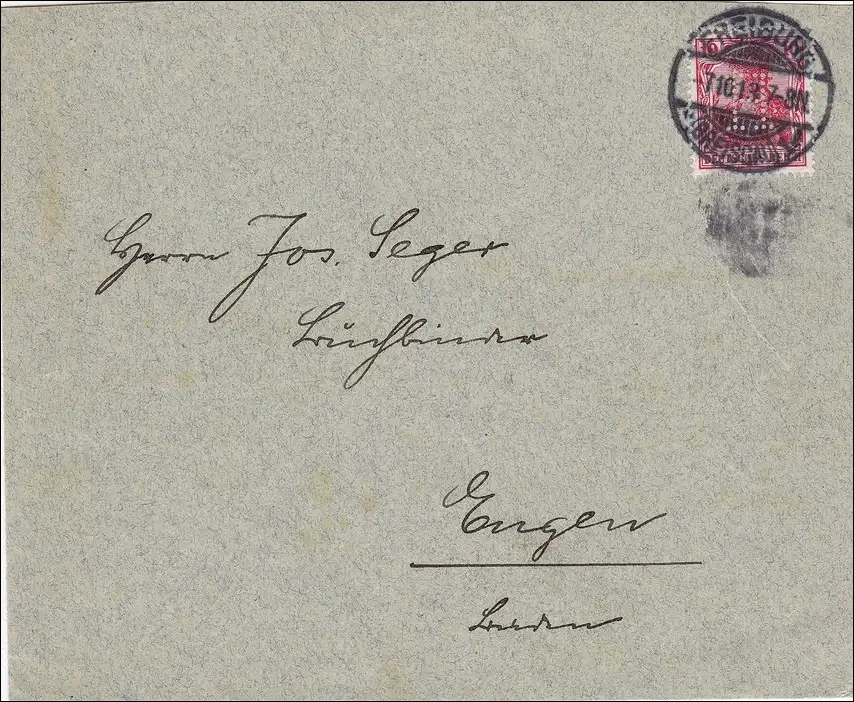 FREIBURG
10
7.10.13. 7-8N.
(BREISGAU)
DEUTSCHES REICH
Herrn Jos. Seger
Buchbinder
Engen
Baden